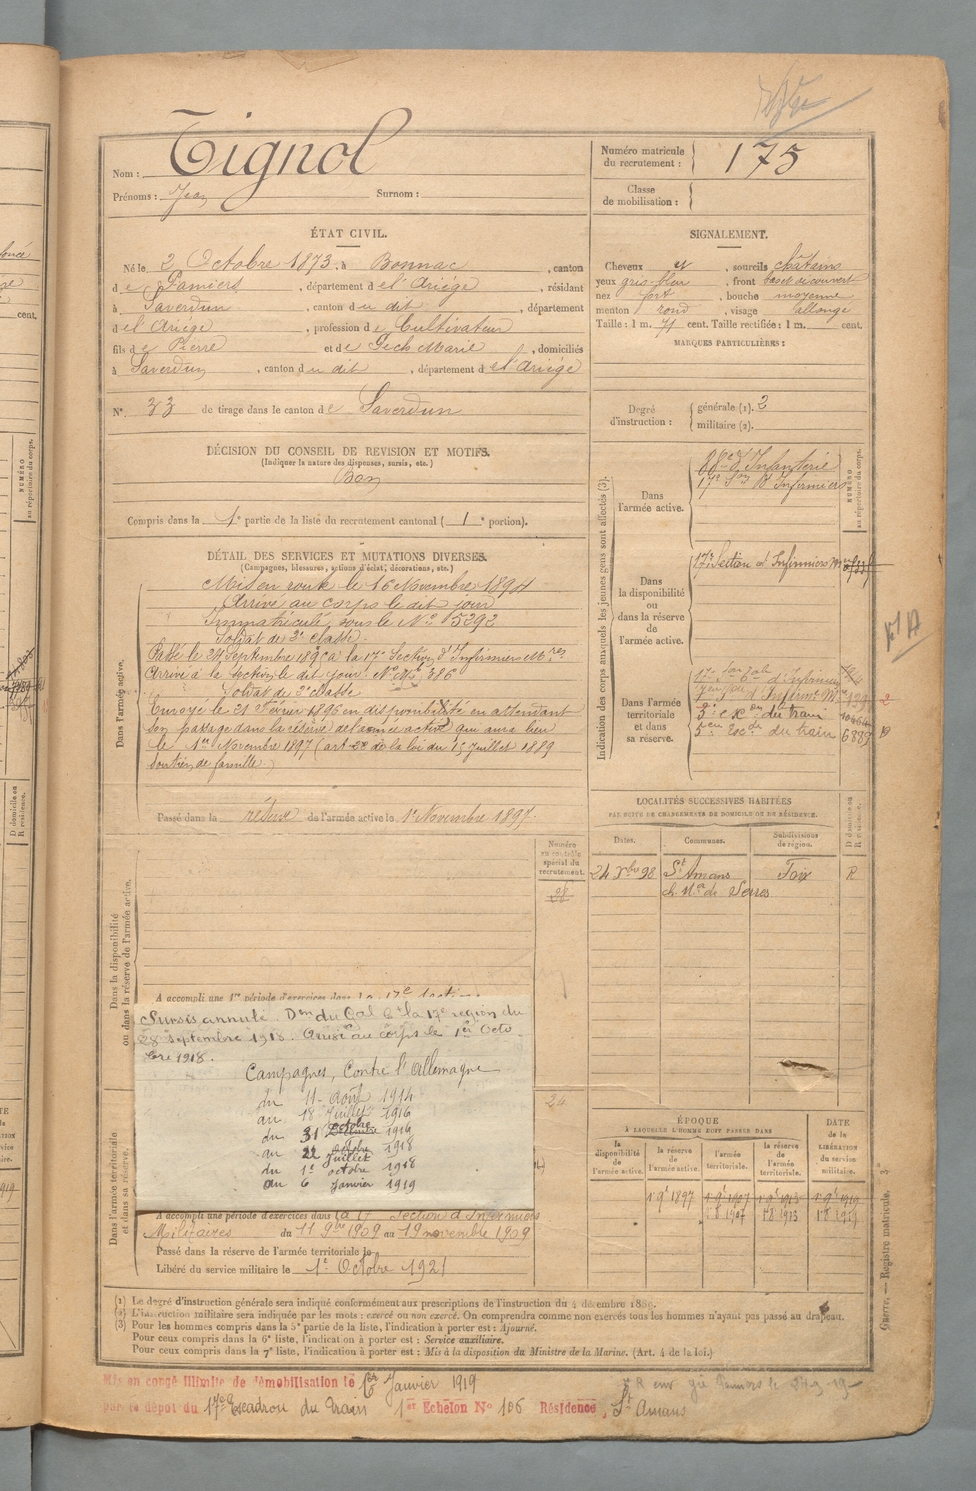 Nom : Tignol
Prénoms : Jean Surnom :
Numéro matricule du recrutement : 175
Classe de mobilisation :
ÉTAT CIVIL.
Né le 2 Octobre 1873, à Bonnac, canton
de Pamiers, département de l'Ariège, résidant
à Saverdun, canton du dit, département
de l'Ariège, profession de Cultivateur
fils de Pierre et de Pech Marie, domiciliés
à Saverdun, canton du dit, département de l'Ariège
N° 33 de tirage dans le canton de Saverdun
SIGNALEMENT.
Cheveux et, sourcils châtains
yeux gris-bleu, front bas et découvert
nez fort, bouche moyenne
menton rond, visage allongé
Taille : 1 m. 71 cent. Taille rectifiée : 1 m. cent.
MARQUES PARTICULIÈRES :
Degré d'instruction : générale (1). 2
militaire (2).
DÉCISION DU CONSEIL DE REVISION ET MOTIFS.
(Indiquer la nature des dispenses, sursis, etc.)
Bon
Compris dans la 1e partie de la liste du recrutement cantonal (1e portion).
DÉTAIL DES SERVICES ET MUTATIONS DIVERSES.
(Campagnes, blessures, actions d'éclat, décorations, etc.)
Dans l'armée active.
Mis en route le 16 Novembre 1894
Arrivé au corps le dit jour
Immatriculé sous le N° 5292
Soldat de 2e classe.
Passé le Septembre à la 17e Section d'Infirmiers Mres
Arrivé à la section le dit jour. N° Mle 386
Soldat de 2e classe
Envoyé le 21 Février 1896 en disponibilité en attendant
son passage dans la réserve de l'armée active qui aura lieu
le 1er Novembre 1897 (art de la loi du 15 Juillet 1889
soutien de famille)
Passé dans la réserve de l'armée active le 1er Novembre 1897.
Indication des corps auxquels les jeunes gens sont affectés (3).
NUMÉRO au répertoire du corps.
Dans l'armée active.
d'Infanterie
17e Son d'Infirmiers
Dans la disponibilité ou dans la réserve de l'armée active.
17e Section d'Infirmiers
Dans l'armée territoriale et dans sa réserve.
du train
du train 6889
LOCALITÉS SUCCESSIVES HABITÉES
PAR SUITE DE CHANGEMENTS DE DOMICILE OU DE RÉSIDENCE.
Dates. Communes. Subdivisions de région. D domicile ou R résidence.
24 Xbre 98 St Amans Foix R
de Serres
Numéro au contrôle spécial du recrutement.
Dans la disponibilité ou dans la réserve de l'armée active.
A accompli une 1re période d'exercices dans la 17e Section
Sursis annulé. Don du Gal Ct la 17e région du
28 septembre 1918. Arrivé au corps le 1er Octo
bre 1918.
Campagnes, Contre l'Allemagne
du 11 août 1914
au 18 Juillet 1916
du 31 octobre 1916
au 22 Juillet 1918
du 1er octobre 1918
au 6 Janvier 1919
Dans l'armée territoriale et dans sa réserve.
A accompli une période d'exercices dans la 17e Section d'Infirmiers
Militaires du 11 9bre 1909 au 19 novembre 1909
Passé dans la réserve de l'armée territoriale le
Libéré du service militaire le 1er Octobre 1921
ÉPOQUE
À LAQUELLE L'HOMME DOIT PASSER DANS
la disponibilité de l'armée active. la réserve de l'armée active. l'armée territoriale. la réserve de l'armée territoriale.
DATE de la LIBÉRATION du service militaire.
1 9e 1897 1 9e 1907 1 9e 1913 1 9e 1919
(1) Le degré d'instruction générale sera indiqué conformément aux prescriptions de l'instruction du 4 décembre 1889.
(2) L'instruction militaire sera indiquée par les mots : exercé ou non exercé. On comprendra comme non exercés tous les hommes n'ayant pas passé au drapeau.
(3) Pour les hommes compris dans la 5e partie de la liste, l'indication à porter est : Ajourné.
Pour ceux compris dans la 6e liste, l'indication à porter est : Service auxiliaire.
Pour ceux compris dans la 7e liste, l'indication à porter est : Mis à la disposition du Ministre de la Marine. (Art. 4 de la loi.)
Guerre. — Registre matricule. 3e
Mis en congé illimité de démobilisation le 6 Janvier 1919
par le dépôt du 17e Escadron du Train 1er Echelon N° 106 Résidence, St Amans